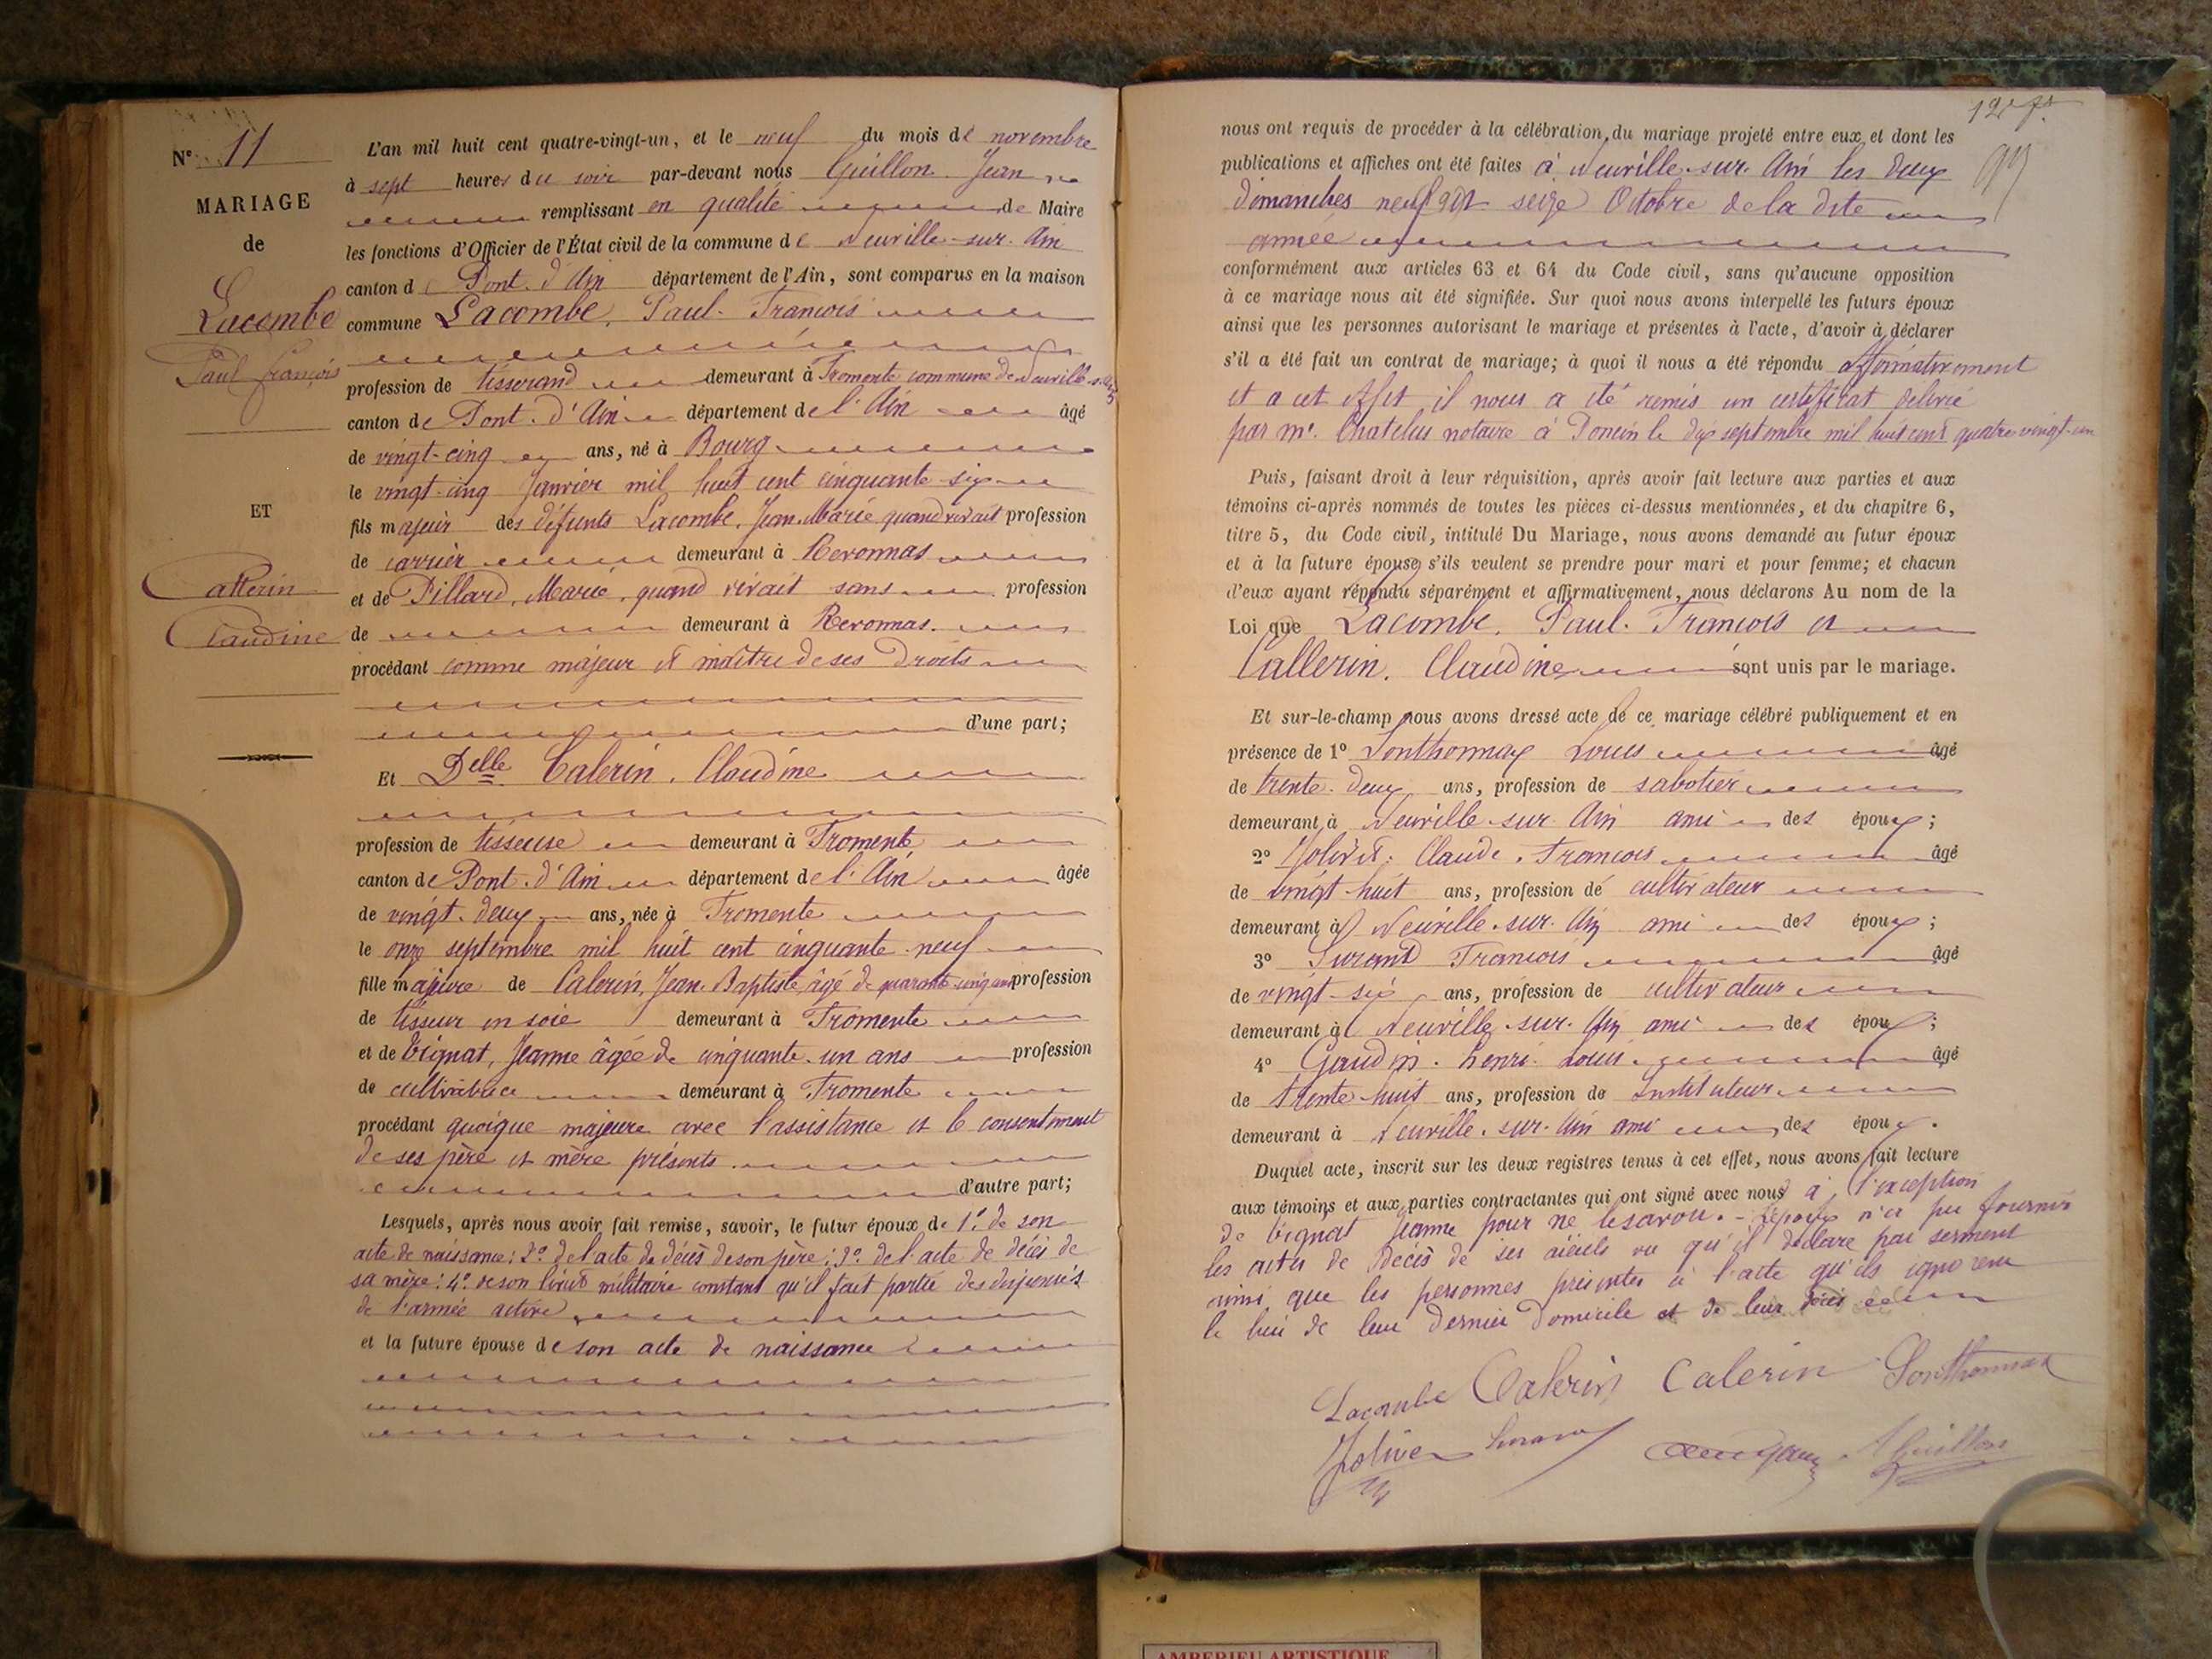 Nº 11
MARIAGE
de
Lacombe
Paul françois
ET
Callerin
Claudine
L'an mil huit cent quatre-vingt-un, et le neuf du mois de novembre
à sept heures du soir par-devant nous Guillon Jean
remplissant en qualité de Maire
les fonctions d'Officier de l'État civil de la commune de Neuville-sur-Ain
canton de Pont-d'Ain département de l'Ain, sont comparus en la maison
commune Lacombe, Paul-François
profession de tisserand demeurant à Fromente commune de Neuville s. Ain
canton de Pont-d'Ain département de l'Ain âgé
de vingt-cinq ans, né à Bourg
le vingt-cinq Janvier mil huit cent cinquante six
fils majeur des défunts Lacombe, Jean-Marie quand vivait profession
de carrier demeurant à Revonnas
et de Pillard, Marie, quand vivait sans profession
de demeurant à Revonnas.
procédant comme majeur et maître de ses Droits
d'une part;
Et Delle Calerin, Claudine
profession de tisseuse demeurant à Fromente
canton de Pont-d'Ain département de l'Ain âgée
de vingt-deux ans, née à Fromente
le onze septembre mil huit cent cinquante-neuf
fille majeure de Calerin, Jean-Baptiste, âgé de quarante-cinq ans profession
de tisseur en soie demeurant à Fromente
et de Vignat, Jeanne âgée de cinquante-un ans profession
de cultivatrice demeurant à Fromente
procédant quoique majeure avec l'assistance et le consentement
de ses père et mère présents
d'autre part;
Lesquels, après nous avoir fait remise, savoir, le futur époux de 1º de son
acte de naissance: 2º de l'acte de décès de son père: 3º de l'acte de décès de
sa mère: 4º de son livret militaire constant qu'il fait partie des disponi
de l'armée active
et la future épouse de son acte de naissance
nous ont requis de procéder à la célébration du mariage projeté entre eux et dont les
publications et affiches ont été faites à Neuville-sur-Ain les deux
dimanches neuf et seize Octobre de la dite
année
conformément aux articles 63 et 64 du Code civil, sans qu'aucune opposition
à ce mariage nous ait été signifiée. Sur quoi nous avons interpellé les futurs époux
ainsi que les personnes autorisant le mariage et présentes à l'acte, d'avoir à déclarer
s'il a été fait un contrat de mariage; à quoi il nous a été répondu affirmativement
et a cet effet il nous a été remis un certificat délivré
par Me. Chatelus notaire à Poncin le dix septembre mil huit cent quatre-vingt-un
Puis, faisant droit à leur réquisition, après avoir fait lecture aux parties et aux
témoins ci-après nommés de toutes les pièces ci-dessus mentionnées, et du chapitre 6,
titre 5, du Code civil, intitulé Du Mariage, nous avons demandé au futur époux
et à la future épouse s'ils veulent se prendre pour mari et pour femme; et chacun
d'eux ayant répondu séparément et affirmativement, nous déclarons Au nom de la
Loi que Lacombe, Paul-François et
Callerin, Claudine sont unis par le mariage.
Et sur-le-champ nous avons dressé acte de ce mariage célébré publiquement et en
présence de 1º Sonthonnax Louis âgé
de trente-deux ans, profession de sabotier
demeurant à Neuville-sur-Ain ami des époux;
2º Jolivet, Claude-François âgé
de vingt-huit ans, profession de cultivateur
demeurant à Neuville-sur-Ain ami des époux;
3º Surand François âgé
de vingt-six ans, profession de cultivateur
demeurant à Neuville-sur-Ain ami des époux;
4º Gaudin Henri Louis âgé
de trente-huit ans, profession de Instituteur
demeurant à Neuville-sur-Ain ami des époux.
Duquel acte, inscrit sur les deux registres tenus à cet effet, nous avons fait lecture
aux témoins et aux parties contractantes qui ont signé avec nous à l'exception
de Vignat Jeanne pour ne le savoir. - L'époux n'a pu fournir
les actes de décès de ses aïeuls vu qu'il déclare par serment
ainsi que les personnes présentes à l'acte qu'ils ignorent
le lieu de leur dernier Domicile et de leur décès
Lacombe Calerin Calerin Sonthonnax
Jolivet Surand Guillon
AMBERIEU ARTISTIQUE